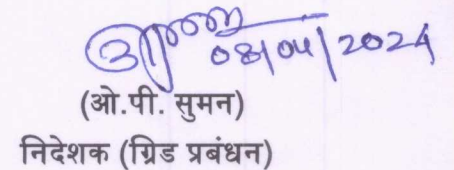 08/04/2024
(ओ.पी. सुमन)
निदेशक (ग्रिड प्रबंधन)